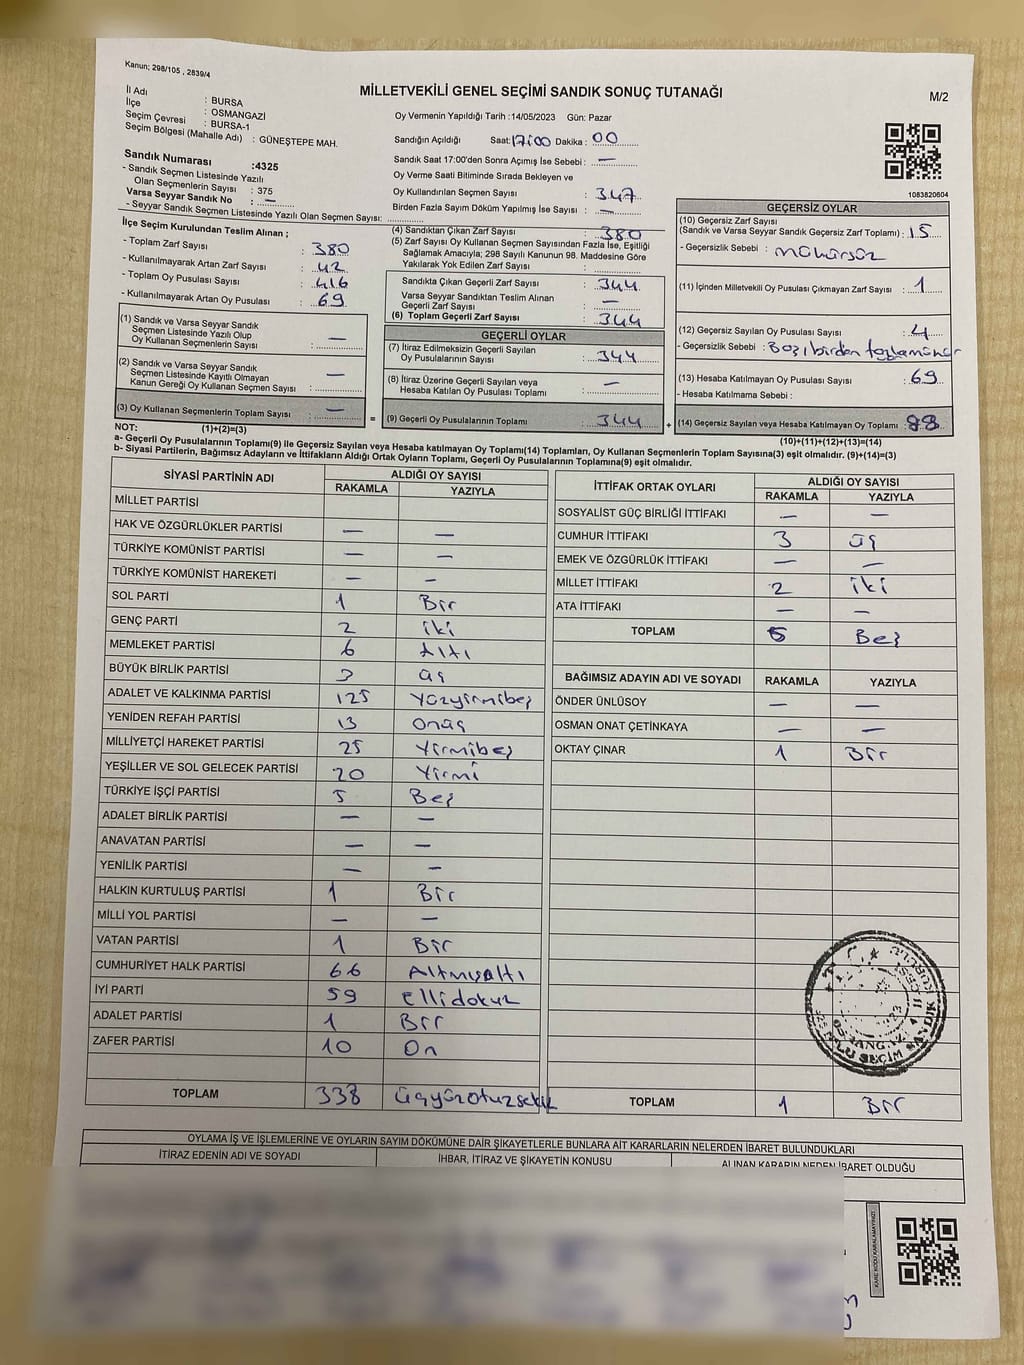 Kanun; 298/105 , 2839/4
MİLLETVEKİLİ GENEL SEÇİMİ SANDIK SONUÇ TUTANAĞI
M/2
İl Adı : BURSA
İlçe : OSMANGAZİ
Seçim Çevresi : BURSA-1
Seçim Bölgesi (Mahalle Adı) : GÜNEŞTEPE MAH.
Oy Vermenin Yapıldığı Tarih :14/05/2023 Gün: Pazar
Sandığın Açıldığı Saat: 17:00 Dakika : 00
Sandık Saat 17:00'den Sonra Açımış İse Sebebi : —
Oy Verme Saati Bitiminde Sırada Bekleyen ve
Oy Kullandırılan Seçmen Sayısı : 347
Birden Fazla Sayım Döküm Yapılmış İse Sayısı : —
1083820604
Sandık Numarası :4325
- Sandık Seçmen Listesinde Yazılı
Olan Seçmenlerin Sayısı : 375
Varsa Seyyar Sandık No : —
- Seyyar Sandık Seçmen Listesinde Yazılı Olan Seçmen Sayısı:
İlçe Seçim Kurulundan Teslim Alınan ;
- Toplam Zarf Sayısı : 380
- Kullanılmayarak Artan Zarf Sayısı : 42
- Toplam Oy Pusulası Sayısı : 416
- Kullanılmayarak Artan Oy Pusulası : 69
(1) Sandık ve Varsa Seyyar Sandık
Seçmen Listesinde Yazılı Olup
Oy Kullanan Seçmenlerin Sayısı : —
(2) Sandık ve Varsa Seyyar Sandık
Seçmen Listesinde Kayıtlı Olmayan
Kanun Gereği Oy Kullanan Seçmen Sayısı : —
(3) Oy Kullanan Seçmenlerin Toplam Sayısı : —
=
(4) Sandıktan Çıkan Zarf Sayısı : 380
(5) Zarf Sayısı Oy Kullanan Seçmen Sayısından Fazla İse, Eşitliği
Sağlamak Amacıyla; 298 Sayılı Kanunun 98. Maddesine Göre
Yakılarak Yok Edilen Zarf Sayısı :
Sandıkta Çıkan Geçerli Zarf Sayısı : 344
Varsa Seyyar Sandıktan Teslim Alınan
Geçerli Zarf Sayısı : —
(6) Toplam Geçerli Zarf Sayısı : 344
GEÇERLİ OYLAR
(7) İtiraz Edilmeksizin Geçerli Sayılan
Oy Pusulalarının Sayısı : 344
(8) İtiraz Üzerine Geçerli Sayılan veya
Hesaba Katılan Oy Pusulası Toplamı : —
(9) Geçerli Oy Pusulalarının Toplamı : 344
+
GEÇERSİZ OYLAR
(10) Geçersiz Zarf Sayısı
(Sandık ve Varsa Seyyar Sandık Geçersiz Zarf Toplamı) : 15
- Geçersizlik Sebebi : mühürsüz
(11) İçinden Milletvekili Oy Pusulası Çıkmayan Zarf Sayısı : 1
(12) Geçersiz Sayılan Oy Pusulası Sayısı : 4
- Geçersizlik Sebebi :
(13) Hesaba Katılmayan Oy Pusulası Sayısı : 69
- Hesaba Katılmama Sebebi :
(14) Geçersiz Sayılan veya Hesaba Katılmayan Oy Toplamı :
NOT: (1)+(2)=(3)
(10)+(11)+(12)+(13)=(14)
a- Geçerli Oy Pusulalarının Toplamı(9) ile Geçersiz Sayılan veya Hesaba katılmayan Oy Toplamı(14) Toplamları, Oy Kullanan Seçmenlerin Toplam Sayısına(3) eşit olmalıdır. (9)+(14)=(3)
b- Siyasi Partilerin, Bağımsız Adayların ve İttifakların Aldığı Ortak Oyların Toplamı, Geçerli Oy Pusulalarının Toplamına(9) eşit olmalıdır.
SİYASİ PARTİNİN ADI ALDIĞI OY SAYISI
RAKAMLA YAZIYLA
MİLLET PARTİSİ
HAK VE ÖZGÜRLÜKLER PARTİSİ — —
TÜRKİYE KOMÜNİST PARTİSİ — —
TÜRKİYE KOMÜNİST HAREKETİ — —
SOL PARTİ 1 Bir
GENÇ PARTİ 2 iki
MEMLEKET PARTİSİ 6 Altı
BÜYÜK BİRLİK PARTİSİ 3 üç
ADALET VE KALKINMA PARTİSİ 125 Yüzyirmibeş
YENİDEN REFAH PARTİSİ 13 onüç
MİLLİYETÇİ HAREKET PARTİSİ 25 Yirmibeş
YEŞİLLER VE SOL GELECEK PARTİSİ 20 Yirmi
TÜRKİYE İŞÇİ PARTİSİ 5 Beş
ADALET BİRLİK PARTİSİ — —
ANAVATAN PARTİSİ — —
YENİLİK PARTİSİ — —
HALKIN KURTULUŞ PARTİSİ 1 Bir
MİLLİ YOL PARTİSİ — —
VATAN PARTİSİ 1 Bir
CUMHURİYET HALK PARTİSİ 66 Altmışaltı
İYİ PARTİ 59 ellidokuz
ADALET PARTİSİ 1 Bir
ZAFER PARTİSİ 10 On
TOPLAM 338 üçyüzotuzsekiz
İTTİFAK ORTAK OYLARI ALDIĞI OY SAYISI
RAKAMLA YAZIYLA
SOSYALİST GÜÇ BİRLİĞİ İTTİFAKI — —
CUMHUR İTTİFAKI 3 üç
EMEK VE ÖZGÜRLÜK İTTİFAKI — —
MİLLET İTTİFAKI 2 iki
ATA İTTİFAKI — —
TOPLAM 5 Beş
BAĞIMSIZ ADAYIN ADI VE SOYADI RAKAMLA YAZIYLA
ÖNDER ÜNLÜSOY — —
OSMAN ONAT ÇETİNKAYA — —
OKTAY ÇINAR 1 Bir
TOPLAM 1 Bir
OYLAMA İŞ VE İŞLEMLERİNE VE OYLARIN SAYIM DÖKÜMÜNE DAİR ŞİKAYETLERLE BUNLARA AİT KARARLARIN NELERDEN İBARET BULUNDUKLARI
İTİRAZ EDENİN ADI VE SOYADI İHBAR, İTİRAZ VE ŞİKAYETİN KONUSU ALINAN KARARIN NEDEN İBARET OLDUĞU
KARE KODU KARALAMAYINIZ!